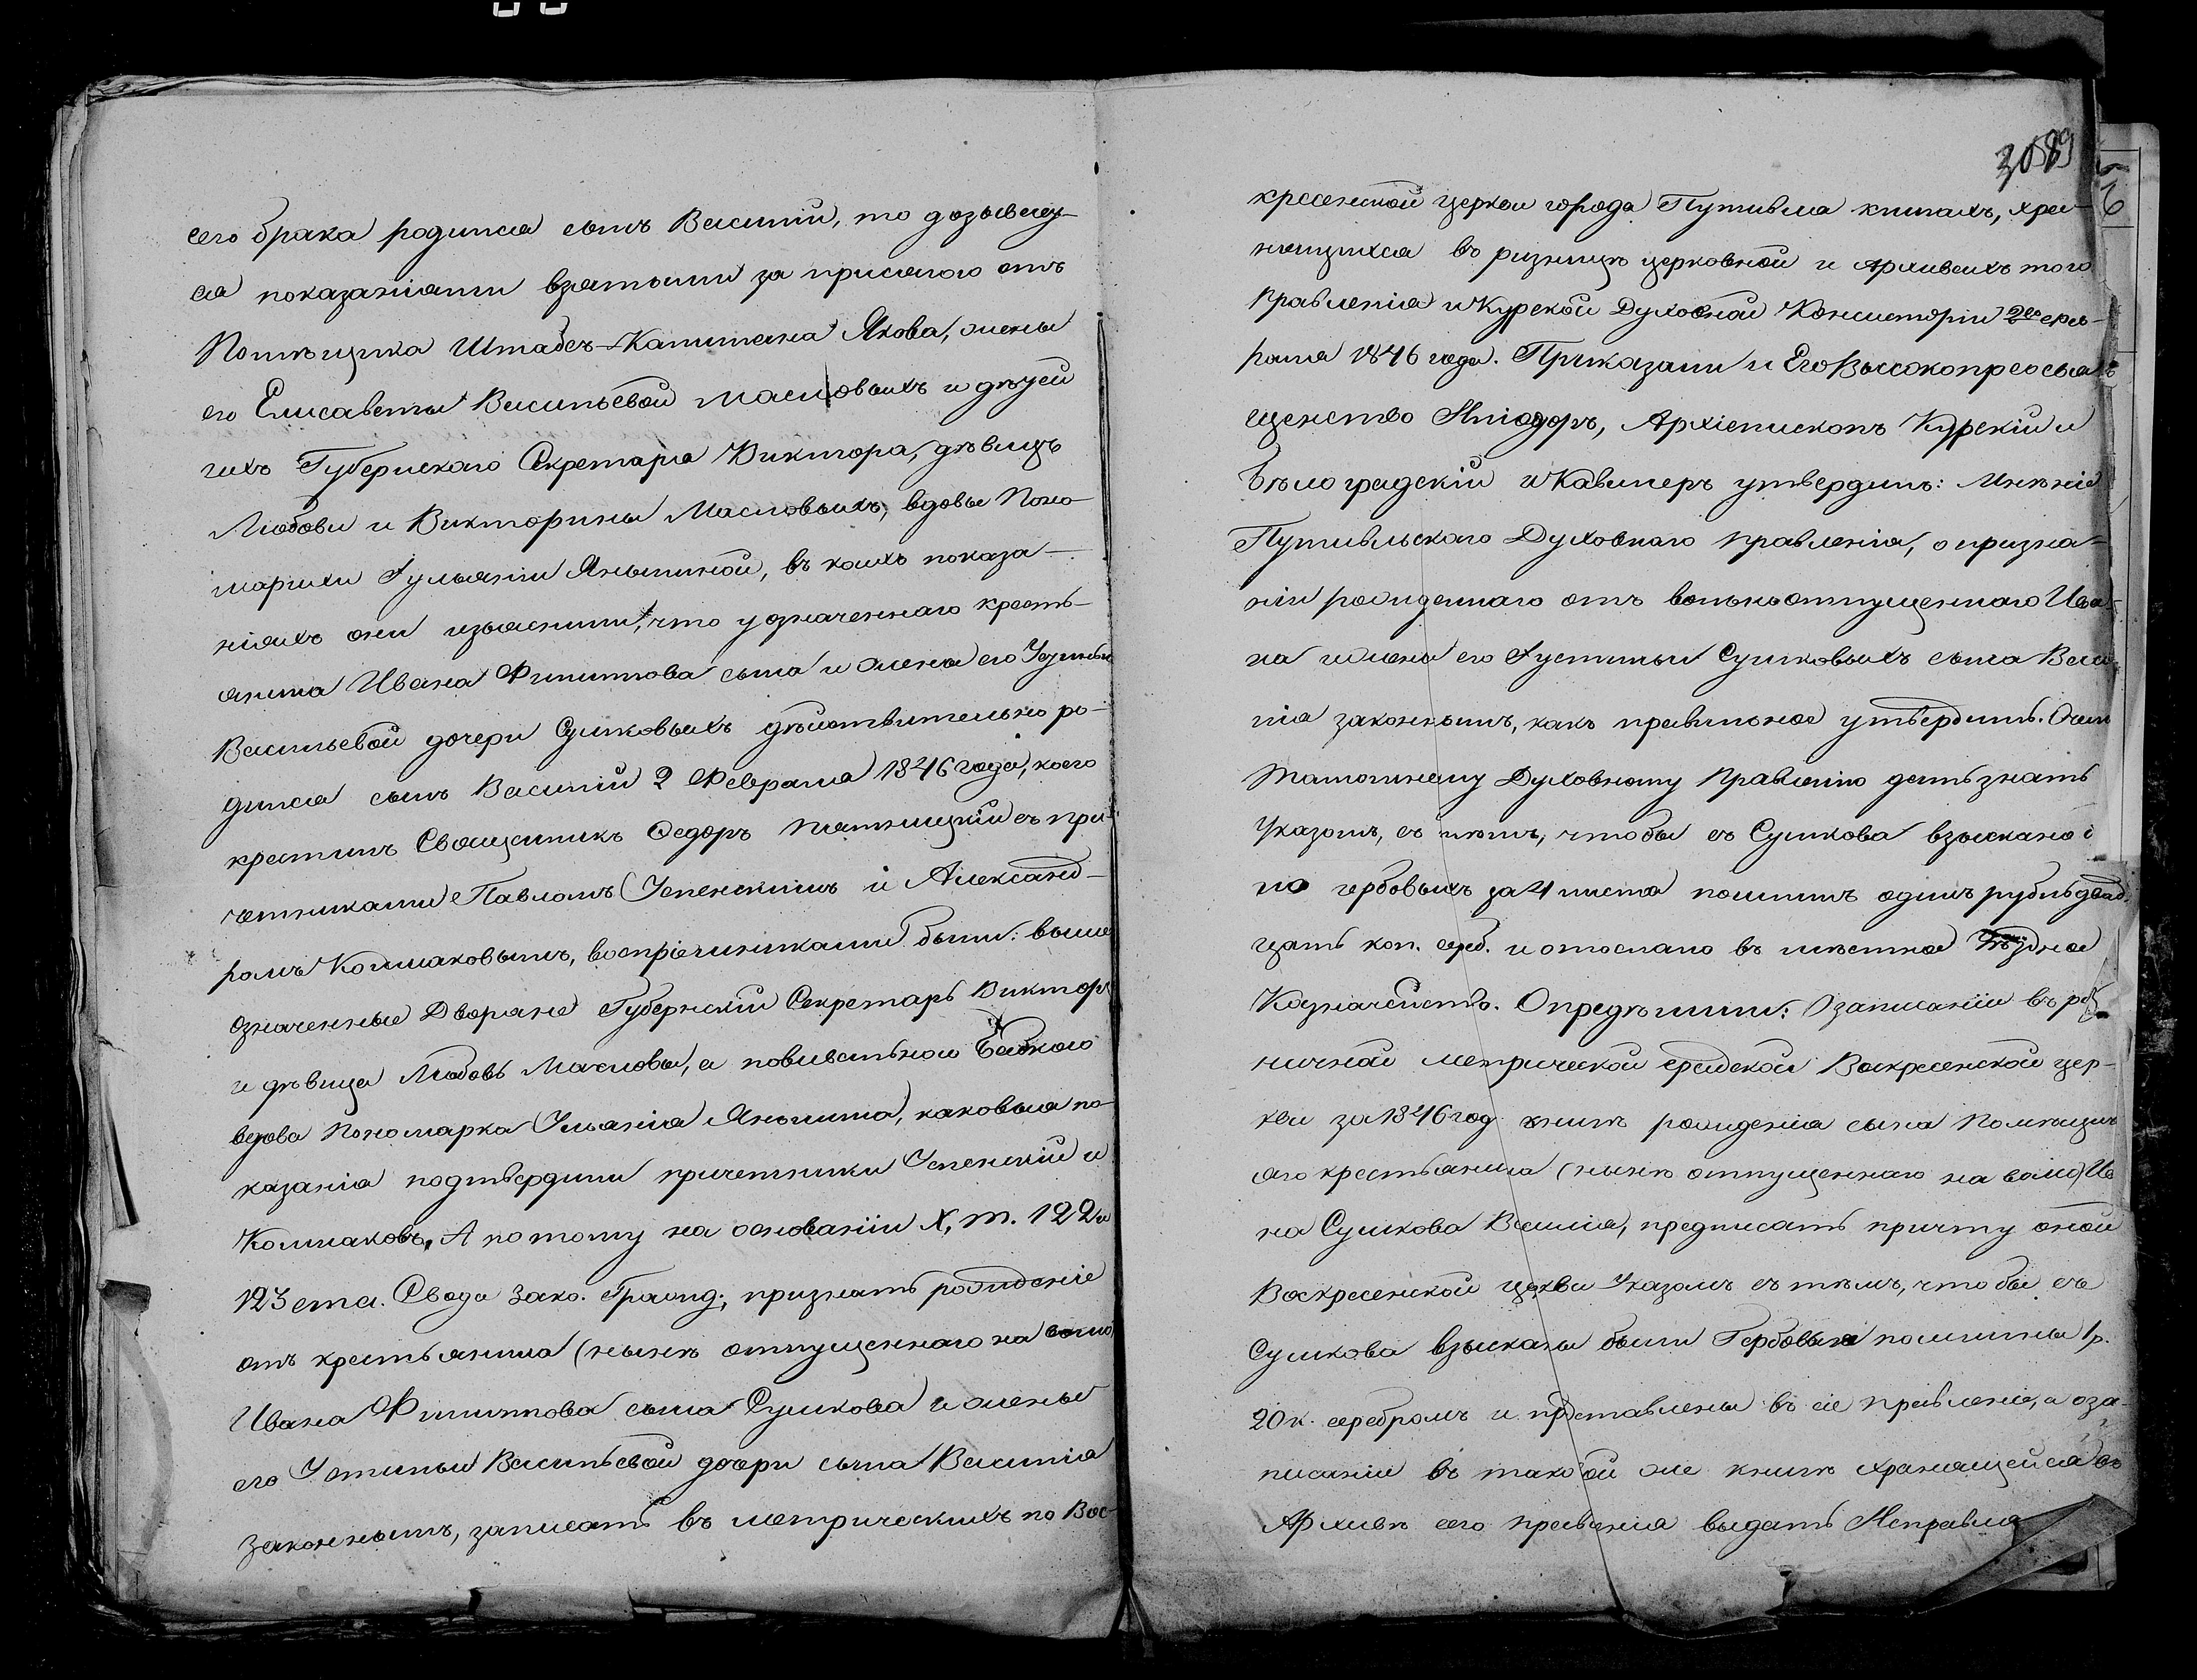 сего брака родился сынъ Василій, то дозывает-
ся показаніями взятыми за присягою отъ
Помѣщика Штабсъ-Капитана Якова, жены
его Елисаветы Васильевой Масловыхъ и дѣтей
ихъ Губернскаго Секретаря Виктора, дѣвицъ
Любови и Викторины Масловыхъ, вдовы Поно-
марихи Іульяніи Яньшиной, въ коихъ показа-
ніяхъ они изъяснили, что у означеннаго кресть-
янина Ивана Филиппова сына и жены его Устиньи
Васильевой дочери Сушковыхъ дѣйствительно ро-
дился сынъ Василій 2 Февраля 1846 года, коего
крестилъ Священникъ Федоръ Пятницкій съ при-
четниками Павломъ Успенскимъ и Александ-
ромъ Колмаковымъ, воспріемниками были: выше
означенные Дворяне Губернскій Секретарь Викторъ
и дѣвица Любовь Масловы, а повивальною Бабкою
вдова Пономарка Ульянія Яньшина, каковыя по-
казанія подтвердили причетники Успенскій и
Колмаковъ. А потому на основаніи X, т. 122 и
123 ста. Свода Зако. Гражд; признать рожденіе
отъ крестьянина (нынѣ отпущеннаго на волю
Ивана Филиппова сына Сушкова и жены
его Устиньи Васильевой дочери сына Василія
законнымъ, записать въ метрическихъ по Вос-
3089
кресенской церкви города Путивля книгахъ, хра-
нящихся въ ризницѣ церковной и Архивахъ того
Правленія и Курской Духовной Консисторіи 2го
раля 1846 года. Приказали и Его Высокопреосвя-
щенство Иліодоръ, Архіепископъ Курскій и
Бѣлоградскій и Кавалеръ утвердилъ: Мнѣніе
Путивльскаго Духовнаго Правленія, о призна-
ніи рожденнаго отъ вольноотпущеннаго Ива-
на и жены его Іустиньи Сушковыхъ сына Васи-
лія законнымъ, какъ правильное утвердить. О чемъ
тамошнему Духовному Правленію дать знать
Указомъ, съ тѣмъ, чтобы съ Сушкова взыскано
но гербовыхъ за 4 листа пошлинъ одинъ рубль двад-
цать коп. сереб. и отослано въ мѣстное Уѣздное
Казначейство. Опредѣлили: О записаніи въ риз-
ничной метрической градской Воскресенской цер-
кви за 1846 год книгѣ рожденія сына Помѣщичь
яго крестьянина (нынѣ отпущеннаго на волю) Ива
на Сушкова Василія, предписать причту оной
Воскресенской церкви Указомъ съ тѣмъ, чтобы съ
Сушкова взысканы были Гербовыя пошлины 1 р.
20 к. серебромъ и представлены въ сіе Правленіе, а о за-
писаніи въ таковой же книгѣ хранящейся въ
Архивѣ сего Правленія выдать Исправля